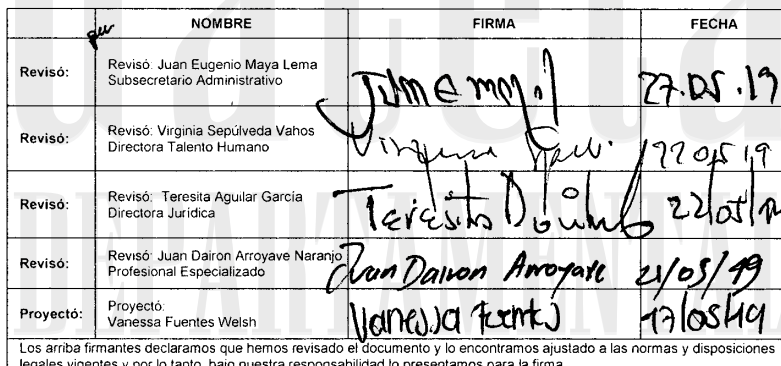 NOMBRE FIRMA FECHA
Revisó: Revisó: Juan Eugenio Maya Lema
Subsecretario Administrativo 27.05.19
Revisó: Revisó: Virginia Sepúlveda Vahos
Directora Talento Humano 22 05 19
Revisó: Revisó: Teresita Aguilar García
Directora Jurídica Teresita 22/05/19
Revisó: Revisó: Juan Dairon Arroyave Naranjo
Profesional Especializado Juan Dairon Arroyave 21/05/19
Proyectó: Proyectó:
Vanessa Fuentes Welsh Vanessa Fuentes 17/05/19
Los arriba firmantes declaramos que hemos revisado el documento y lo encontramos ajustado a las normas y disposiciones
legales vigentes y por lo tanto, bajo nuestra responsabilidad lo presentamos para la firma.